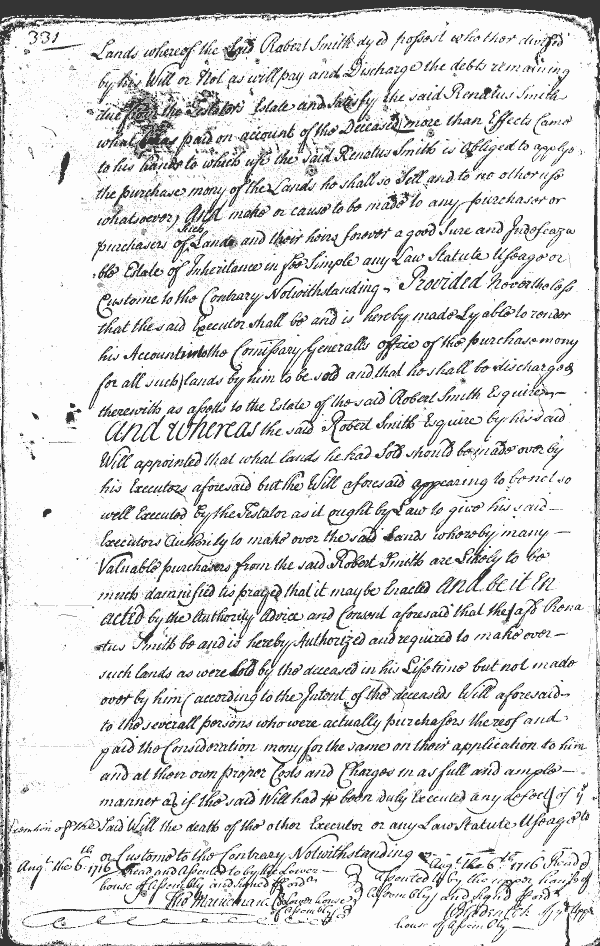 331
Lands whereof the said Robert Smith dyed possest whether devised
by his Will or Not as will pay and Discharge the debts remaining
due from the Testators Estate and Satisfy the said Renatus Smith
what paid on account of the Deceased more than Effects Came
to his hands to which use the said Renatus Smith is obliged to apply
the purchase mony of the Lands he shall so Sell and to no other use
whatsoever, And make or cause to be made to any purchaser or
purchasers of Such Lands and their heirs forever a good Sure and Indefeaza
ble Estate of Inheritance in fee Simple any Law Statute Useage or
Custome to the Contrary Notwithstanding - Provided Nevertheless
that the said Executor shall be and is hereby made Lyable to render
his Account into the Comissary Generalls office of the purchase mony
for all such lands by him to be sold and that he shall be discharged
therewith as assetts to the Estate of the said Robert Smith Esquire -
And whereas the said Robert Smith Esquire by his said
Will appointed that what lands he had Sold should be made over by
his Executors aforesaid but the Will aforesaid appearing to be not so
well Executed by the Testator as it ought by Law to give his said -
Executors Authority to make over the said Lands whereby many -
Valuable purchasers from the said Robert Smith are Likely to be
much damnified tis prayed that it may be Enacted And be it En
acted by the Authority Advice and Consent aforesaid that the said Rena
tus Smith be and is hereby Authorized and required to make over -
such lands as were Sold by the deceased in his Life time but not made
over by him (according to the Intent of the deceaseds Will aforesaid -
to the severall persons who were actually purchasers thereof and
paid the Consideration mony for the same on their application to him
and at their own proper Costs and Charges in as full and ample -
manner as if the said Will had been duly Executed any defect of ye
Execution of the Said Will the death of the other Executor or any Law Statute Useage to
or Custome to the Contrary Notwithstanding
Augt. the 6th. 1716 Read and Assented to by the Lower
house of Assembly and signed
Tho Lower house
of Assembly
Augt. the 6th. 1716 Read
Assented to by the upper house of
Assembly and Signd
upp
house of Assembly